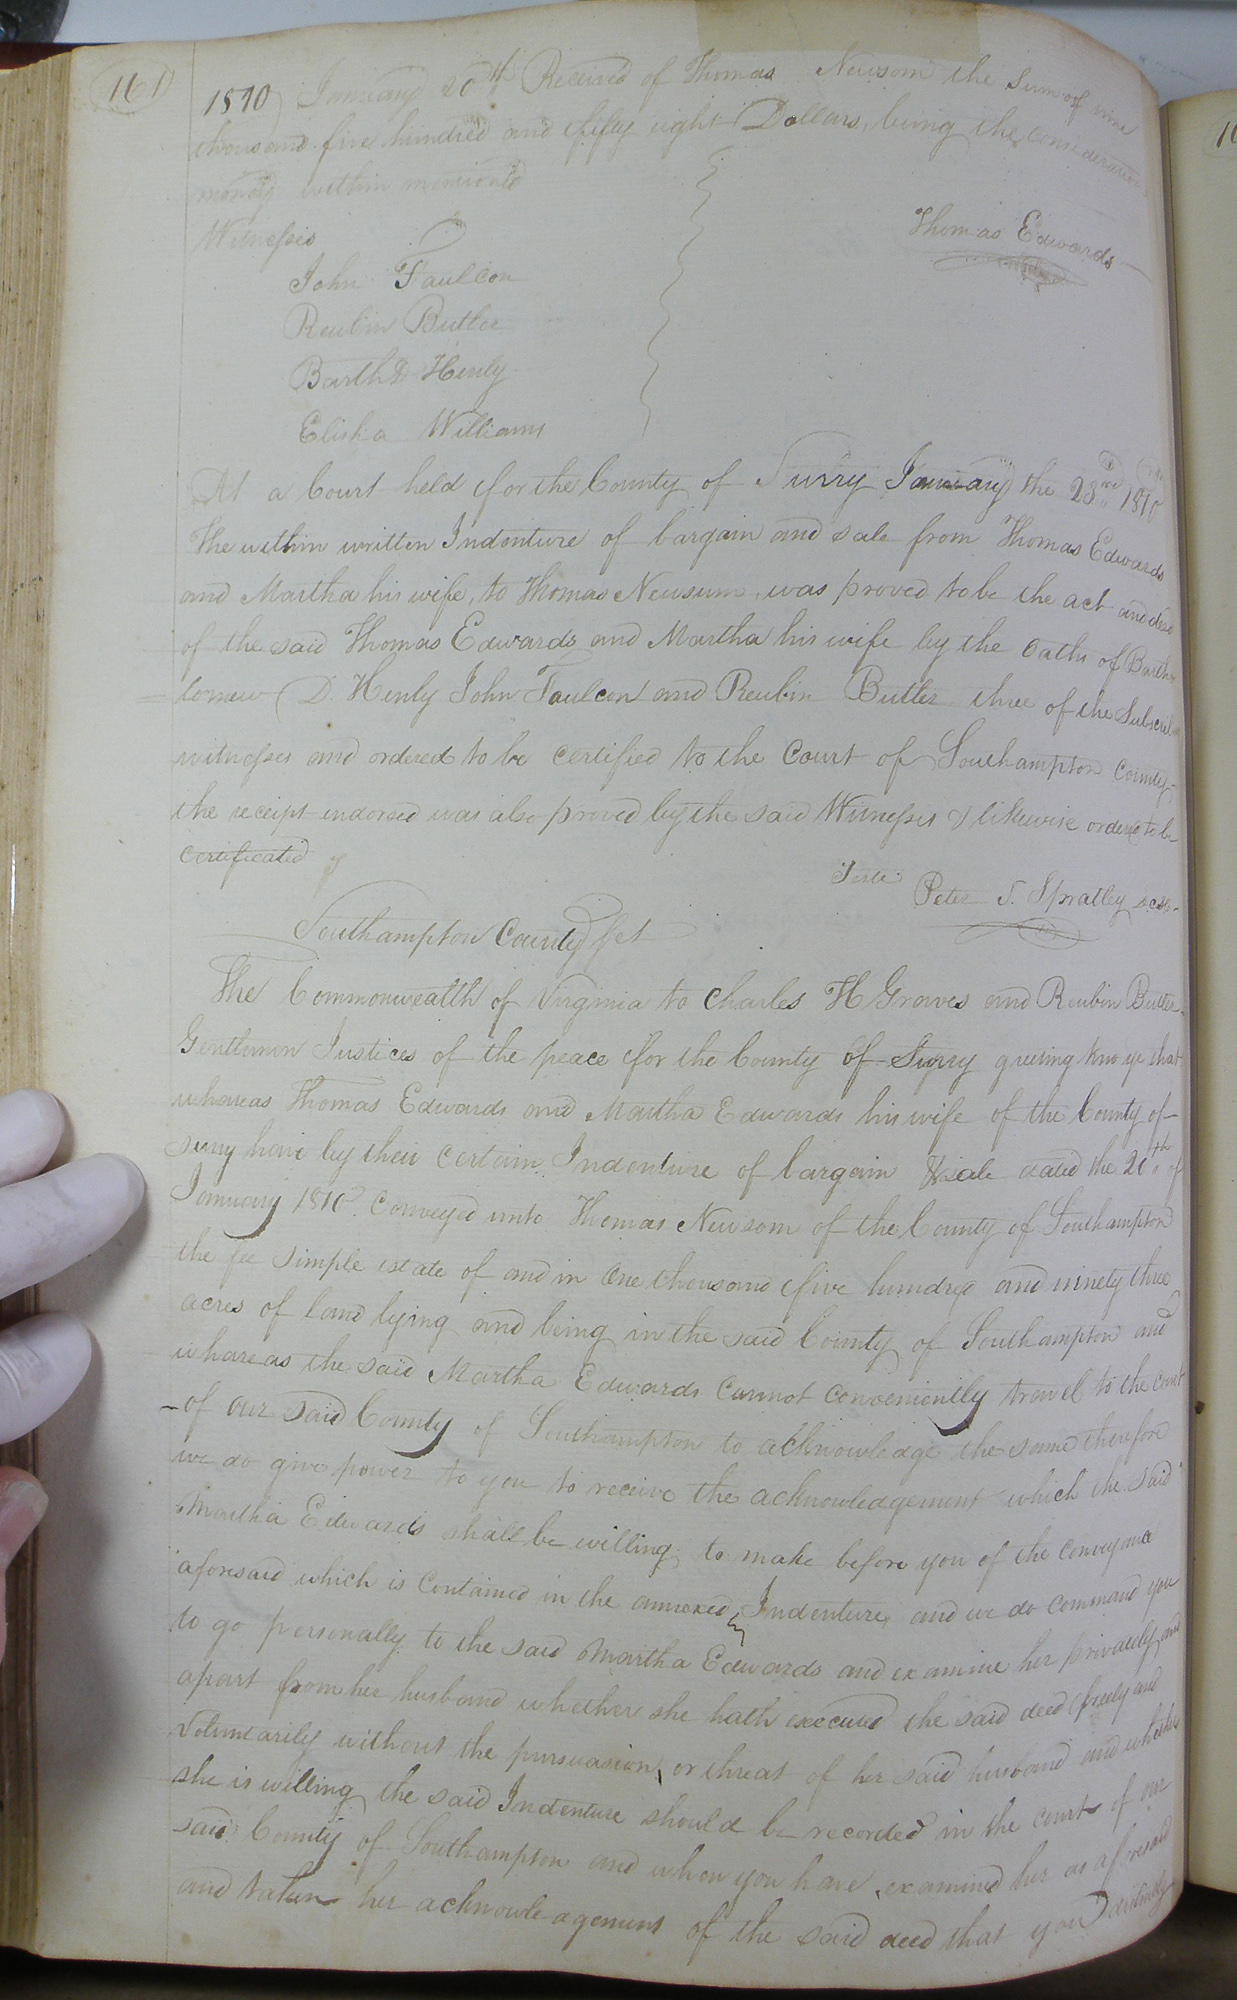 161
1810 January 20th Received of Thomas Newsom the Sum of nine
thousand five hundred and fifty eight Dollars, being the consideration
money within mentioned
Witnesses
Thomas Edwards
John Faulcon
Reubin Butler
Barth D Henly
Elisha Williams
At a Court held for the County of Surry January the 23rd 1810
The within written Indenture of bargain and sale from Thomas Edwards
and Martha his wife, to Thomas Newsum, was proved to be the act and deed
of the said Thomas Edwards and Martha his wife by the Oaths of Bartho
lomew D. Henly John Faulcon and Reubin Butler three of the Subscri
witnesses and ordered to be certified to the Court of Southampton County,
the receipt indorsed was also proved by the said Witnesses & likewise ordered to be
certificated
Teste
Peter T. Spratley
Southampton County Sct
The Commonwealth of Virginia to Charles H Graves and Reubin Butler
Gentlemen Justices of the peace for the County of Surry greeting know ye that
whareas Thomas Edwards and Martha Edwards his wife of the County of
Surry have by their certain Indenture of bargain & sale dated the 20th of
January 1810. Conveyed unto Thomas Newsom of the County of Southampton
the fee simple estate of and in One thousand five hundred and ninety three
acres of land lying and being in the said County of Southampton and
whareas the said Martha Edwards Cannot conveniently travel to the court
of our said County of Southampton to acknowledge the same therefore
we do give power to you to receive the acknowledgement which the said
Martha Edwards shall be willing to make before you of the conveyance
aforesaid which is contained in the annexed Indenture, and we do command you
to go personally to the said Martha Edwards and examine her privately and
apart from her husband whether she hath executed the said deed freely and
Voluntarily without the pursuasion or threat of her said husband and whether
she is willing the said Indenture should be recorded in the court of our
said County of Southampton and when you have examined her as aforesaid
and taken her acknowledgement of the said deed that you distinctly